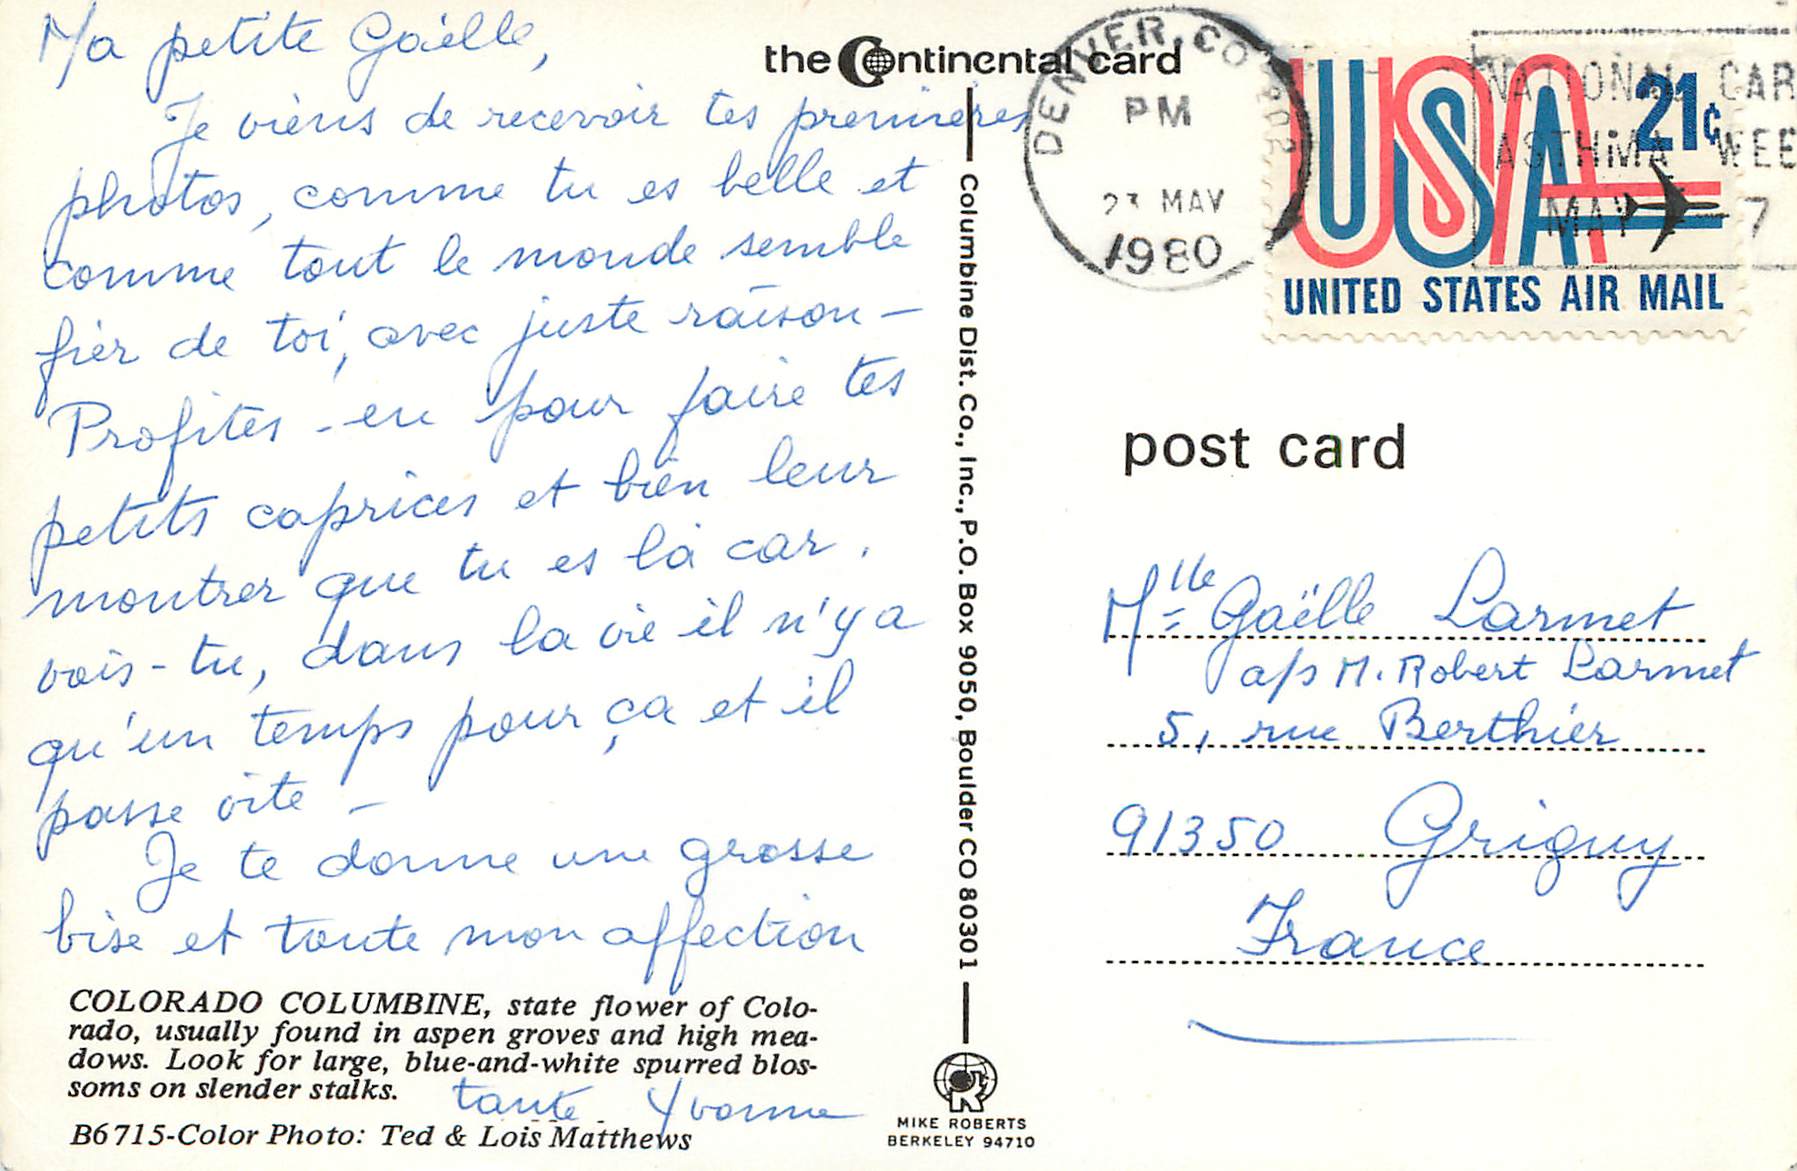 Ma petite Gaëlle,
Je viens de recevoir tes premières
photos, comme tu es belle et
comme tout le monde semble
fier de toi, avec juste raison –
Profites-en pour faire tes
petits caprices et bien leur
montrer que tu es là car,
vois-tu, dans la vie il n'y a
qu'un temps pour ça et il
passe vite –
Je te donne une grosse
bise et toute mon affection
tante Yvonne
COLORADO COLUMBINE, state flower of Colo-
rado, usually found in aspen groves and high mea-
dows. Look for large, blue-and-white spurred blos-
soms on slender stalks.
B6715-Color Photo: Ted & Lois Matthews
the Continental card
Columbine Dist. Co., Inc., P.O. Box 9050, Boulder CO 80301
MIKE ROBERTS
BERKELEY 94710
DENVER, CO 802
PM
23 MAY
1980
NATIONAL CAR
ASTHMA WEE
MAY 7
USA 21¢
UNITED STATES AIR MAIL
post card
Mlle Gaëlle Larmet
a/s M. Robert Larmet
5, rue Berthier
91350 Grigny
France